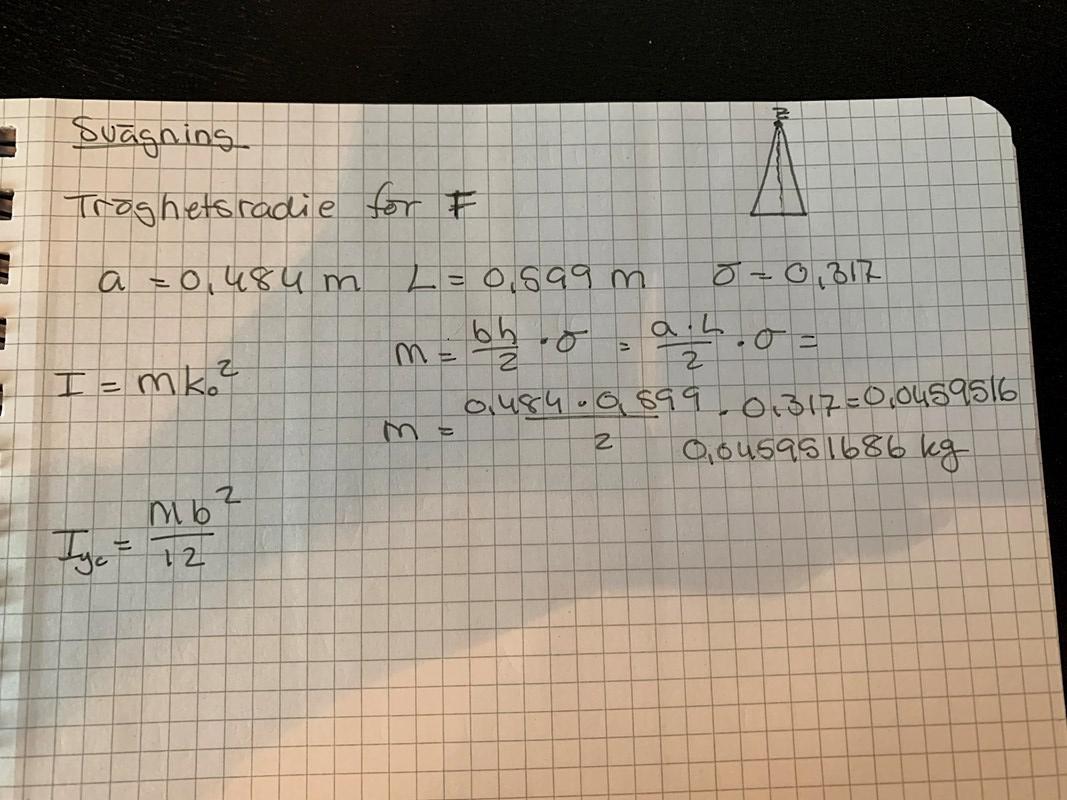 Svägning
Tröghetsradie for F
a = 0,484 m L = 0,599 m σ = 0,317
m = bh/2 · σ = a·L/2 · σ =
I = mk₀²
m = 0,484 · 0,599 / 2 · 0,317 = 0,0459516
0,045951686 kg
I_yc = Mb²/12